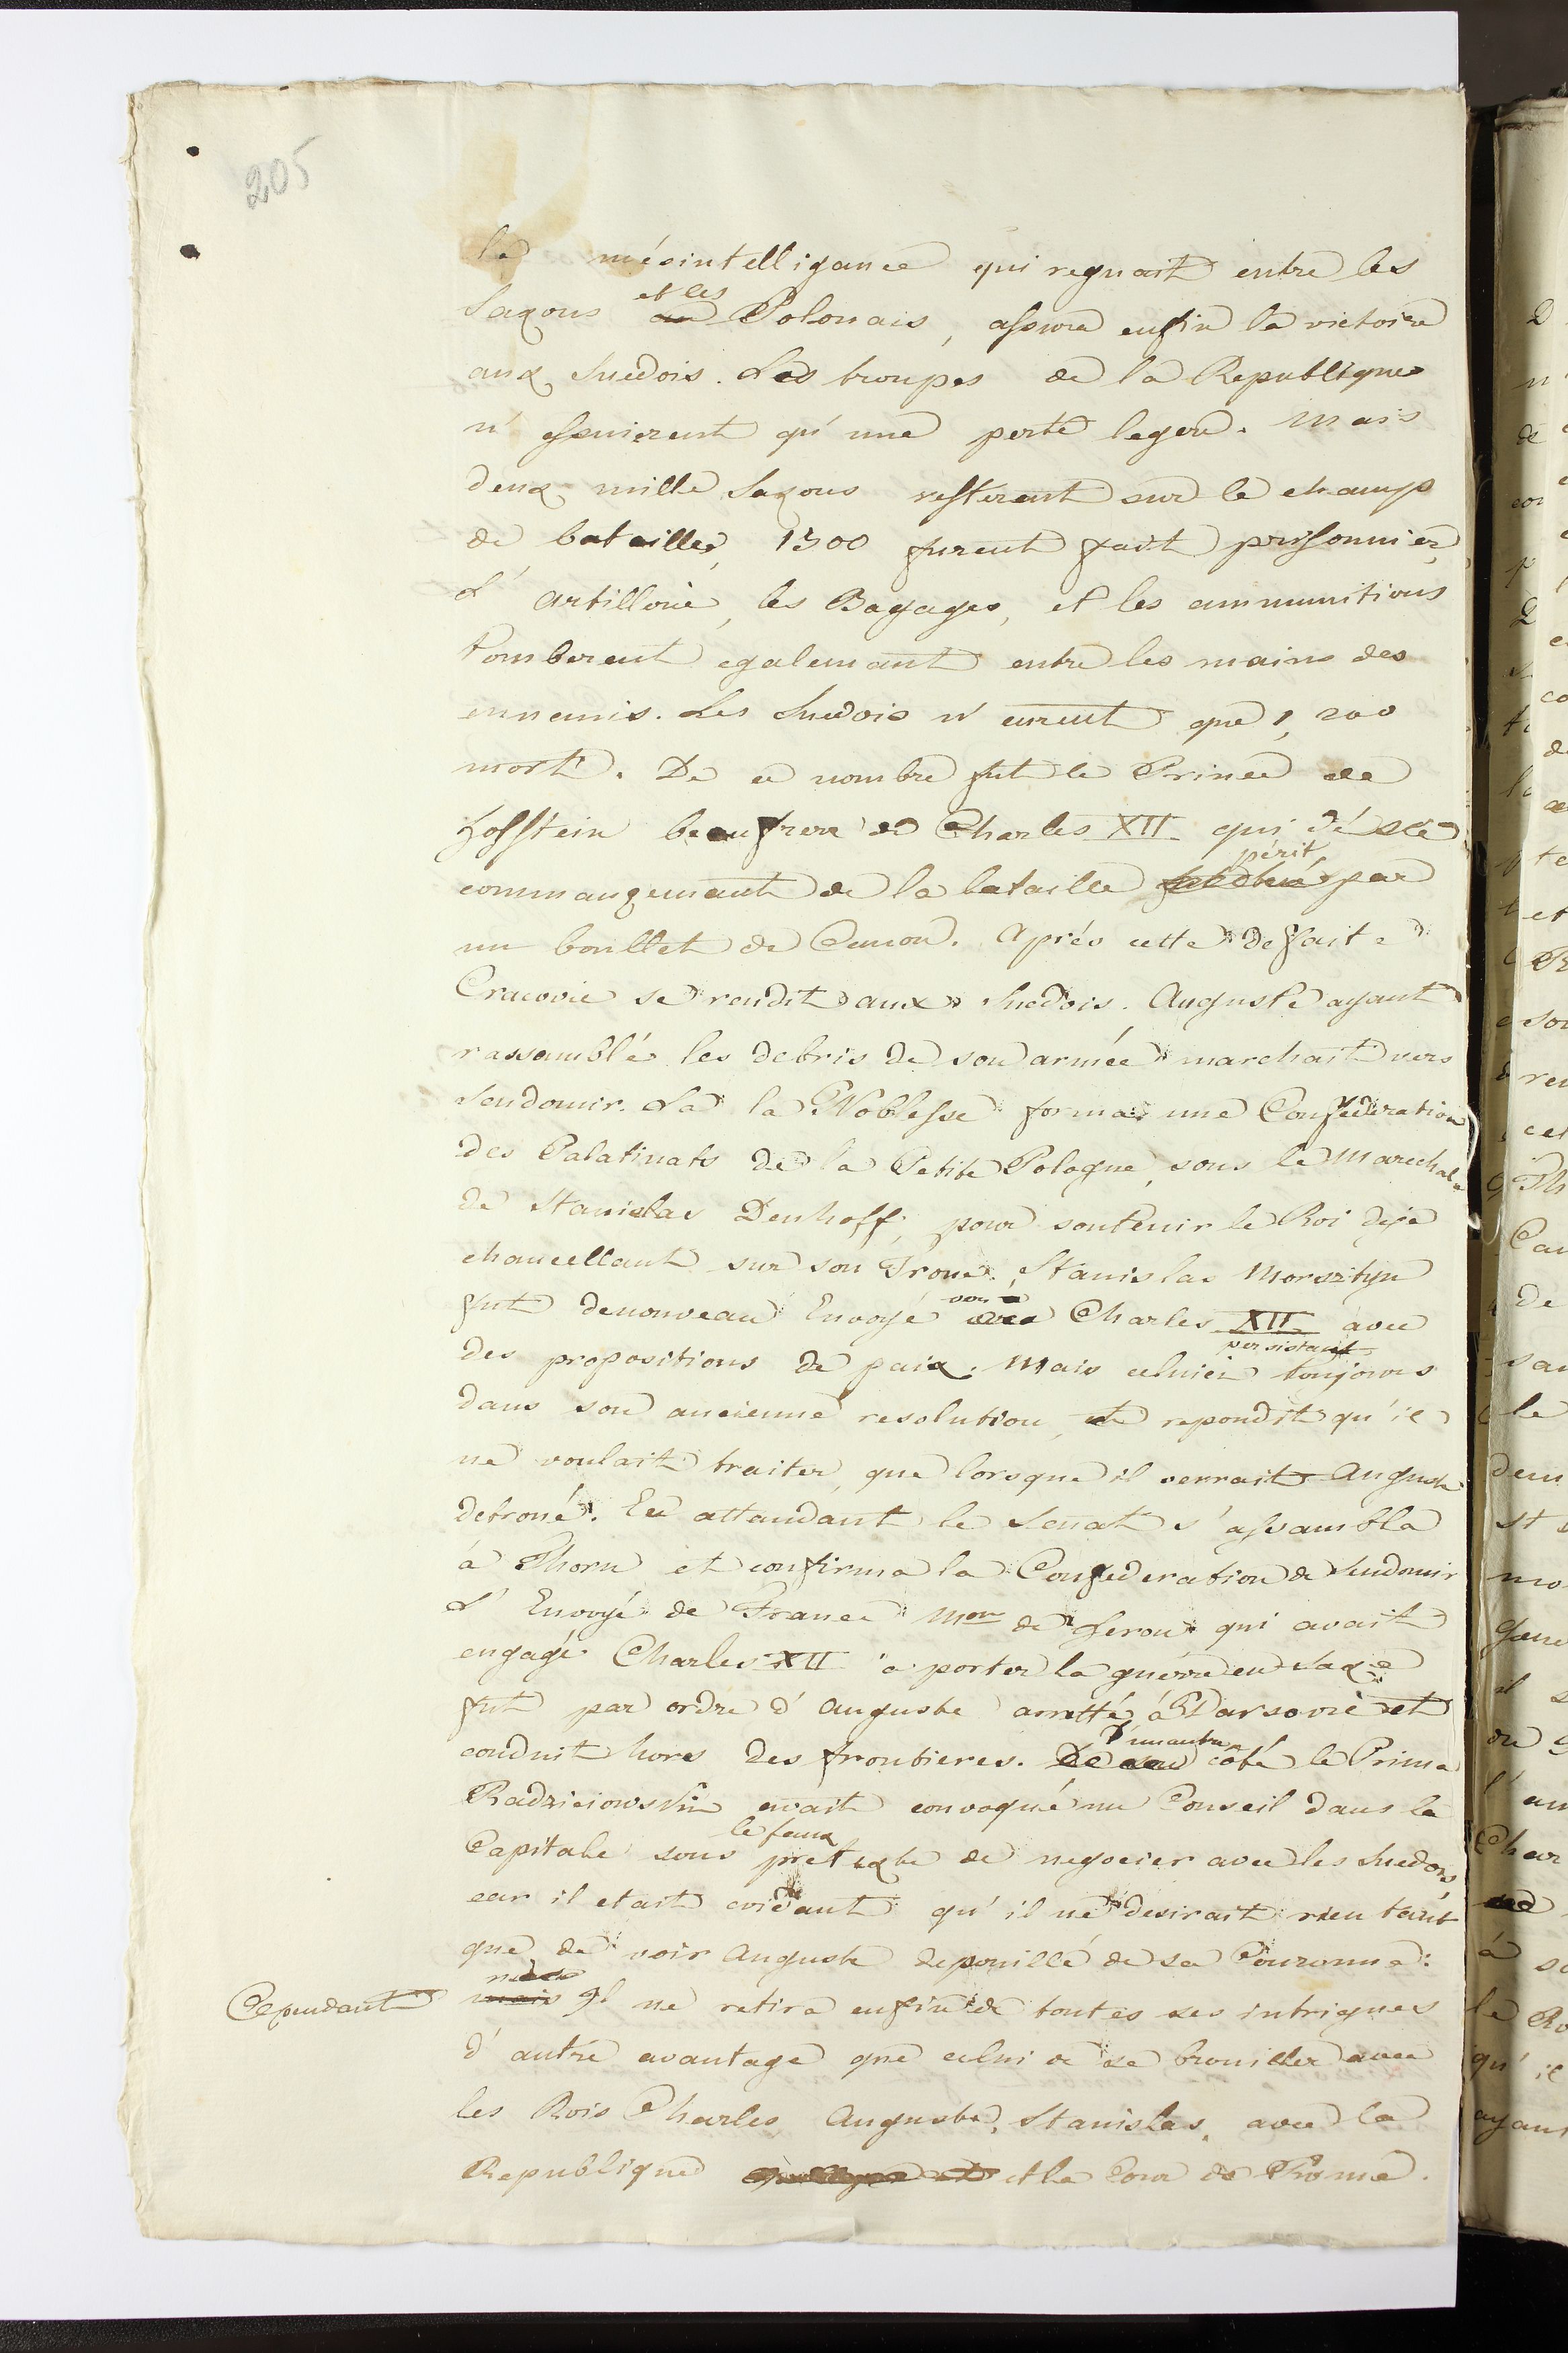 205
la mésintelligance qui regnait entre les
Saxons et les Polonais, assura enfin la victoire
aux Suedois. Les troupes de la Republique
n'essuierent qu'une perte legere. Mais
deux mille Saxons resterent sur le champ
de bataille, 1500 furent fait prisonnier,
L'artillerie, les Bagages, et les ammunitions
tomberent egalemant entre les mains des
ennemis. Les Suedois n'eurent que 1,200
morts. De ce nombre fut le Prince de
Holstein beaufrere de Charles XII qui dés le
périt
commançemant de la bataille par
un boullet de Canon. Aprés cette defaite
Cracovie se rendit aux Suedois. Auguste ayant
rassamblé les debris de son armée marchait vers
Sendomir. La la Noblesse forma une Confederation
des Palatinats de la Petite Pologne, sous le Marechal
de Stanislas Denhoff, pour soutenir le Roi deja
chancellant sur son Trone. Stanislas Morsztyn
fut denouveau Envoyé Charles XII avec
persistant
des propositions de paix. Mais celuici toujours
dans son ancienne resolution, repondit qu'il
ne voulait traiter, que lorsque il verrait Auguste
detroné. En attandant le Senat s'assambla
à Thorn et confirma la Confederation de Sendomir
L'Envoyé de France Mon de Heron qui avait
engagé Charles XII a porter la guerre en Saxe
fut par ordre d'Auguste arretté à Varsovie et
conduit hors des frontieres. D'un autre côté le Prima
Radzieiowski avait convoqué un Conseil dans la
le faux
Capitale sous pretexte de negocier avec les Suedois,
car il etait evidant qu'il ne desirait rien tant
que de voir Auguste depouillé de sa Couronne:
Cependant mais Il ne retira enfin de toutes ses intrigues
d'autre avantage que celui de se brouiller avec
les Rois Charles, Auguste, Stanislas, avec la
Republique et la Cour de Rome.